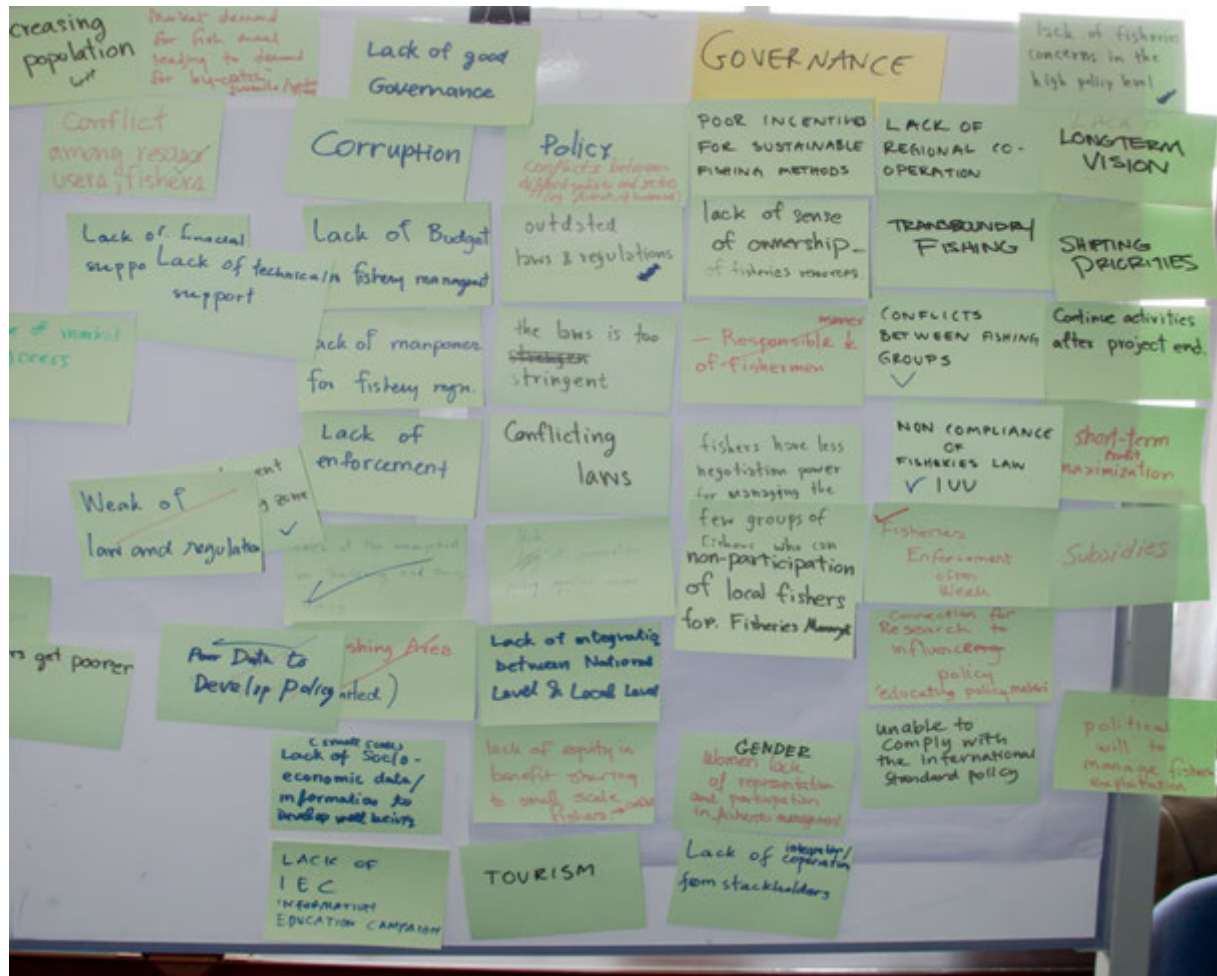 creasing
population
Market demand
for fish meal
leading to demand
for by-catch
Lack of good
Governance
GOVERNANCE
lack of fisheries
concerns in the
high policy level
Conflict
among
users, fishers
Corruption
Policy
conflicts between
POOR INCENTIVES
FOR SUSTAINABLE
FISHING METHODS
LACK OF
REGIONAL CO-
OPERATION
LACK OF
LONGTERM
VISION
Lack of financial
suppo
Lack of technical
support
Lack of Budget
in fishery managmt
outdated
laws & regulations
lack of sense
of ownership
of fisheries resources
TRANSBOUNDRY
FISHING
SHIFTING
PRIORITIES
market
ccess
ack of manpower
for fishery mgn.
the laws is too
stringent
— Responsible
of fishermen
CONFLICTS
BETWEEN FISHING
GROUPS
Continue activities
after project end.
Lack of
enforcement
Conflicting
laws
fishers have less
negotiation power
for managing the
NON COMPLIANCE
OF
FISHERIES LAW
IUU
short-term
profit
maximization
Weak of
law and regulation
ent
g zone
few groups of
fishers who can
non-participation
of local fishers
for. Fisheries
Fisheries
Enforcement
often
Weak
Subsidies
rs get poorer
Poor Data to
Develop Policy
shing Area
Lack of integratio
between National
Level & Local Level
Connection for
Research to
influencing
policy
educating policy
(small scale)
Lack of Socio-
economic data/
information to
Develop well being
lack of equity in
benefit sharing
to small scale
fishers.
GENDER
Women lack
of representation
and participation
in fisheries
unable to
comply with
the international
Standard policy
political
will to
manage
exploitation
LACK OF
IEC
INFORMATION
EDUCATION CAMPAIGN
TOURISM
Lack of
from stackholders